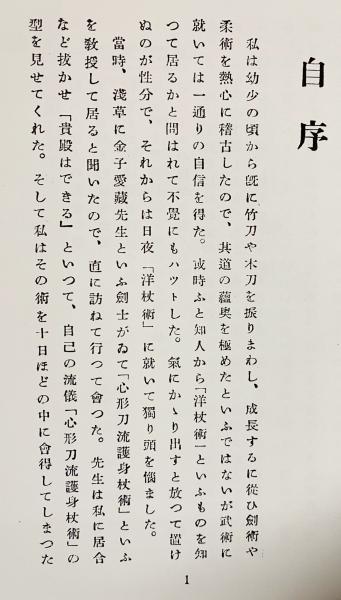 自序
私は幼少の頃から既に竹刀や木刀を振りまわし、成長するに從ひ劍術や
柔術を熱心に稽古したので、其道の蘊奥を極めたといふではないが武術に
就いては一通りの自信を得た。或時ふと知人から「洋杖術」といふものを知
つて居るかと問はれて不覺にもハツトした。氣にかゝり出すと放つて置け
ぬのが性分で、それからは日夜「洋杖術」に就いて獨り頭を惱ました。
當時、淺草に金子愛藏先生といふ劍士がゐて「心形刀流護身杖術」といふ
を敎授して居ると聞いたので、直に訪ねて行つて會つた。先生は私に居合
など拔かせ「貴殿はできる」といつて、自己の流儀「心形刀流護身杖術」の
型を見せてくれた。そして私はその術を十日ほどの中に會得してしまつた
1